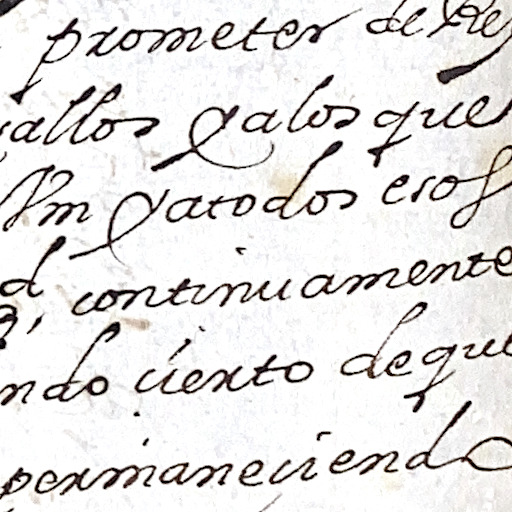 prometer de Re
allos y alos que
Vm y atodos esos
d continuamente
ndo cierto deque
permaneciendo